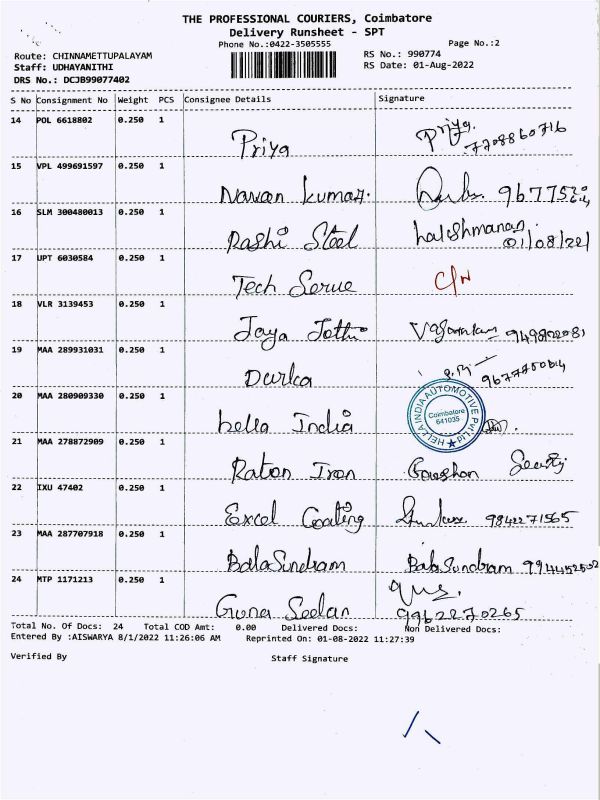 THE PROFESSIONAL COURIERS, Coimbatore
Delivery Runsheet - SPT
Phone No.:0422-3505555 Page No.:2
Route: CHINNAMETTUPALAYAM RS No.: 990774
Staff: UDHAYANITHI RS Date: 01-Aug-2022
DRS No.: DCJB99077402
S No Consignment No Weight PCS Consignee Details Signature
14 POL 6618802 0.250 1 Priya Priya. 7708860716
15 VPL 499691597 0.250 1 Navan Kumar.
16 SLM 300480013 0.250 1 Rashi Steel 01/08/22
17 UPT 6030584 0.250 1 Tech Serve
18 VLR 3139453 0.250 1 Jaya Jothi
19 MAA 289931031 0.250 1 Durka
20 MAA 280909330 0.250 1 hella India HELLA INDIA AUTOMOTIVE PVT LTD Coimbatore 641035
21 MAA 278872909 0.250 1 Raton Iron
22 IXU 47402 0.250 1 Excel Coating 9842271565
23 MAA 287707918 0.250 1 BalaSundram BalaSundram
24 MTP 1171213 0.250 1 Guna Seelan 9962270265
Total No. Of Docs: 24 Total COD Amt: 0.00 Delivered Docs: Non Delivered Docs:
Entered By :AISWARYA 8/1/2022 11:26:06 AM Reprinted On: 01-08-2022 11:27:39
Verified By Staff Signature